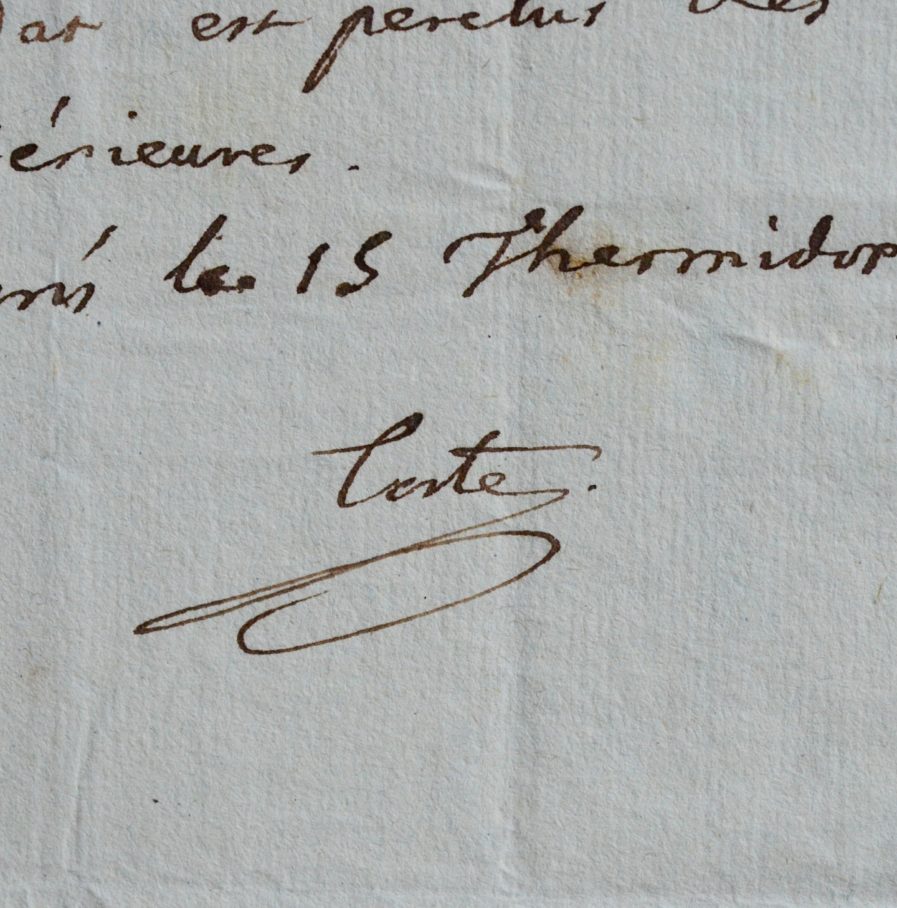 dat est perclus des
érieures.
aris le 15 Thermidor
Coste.